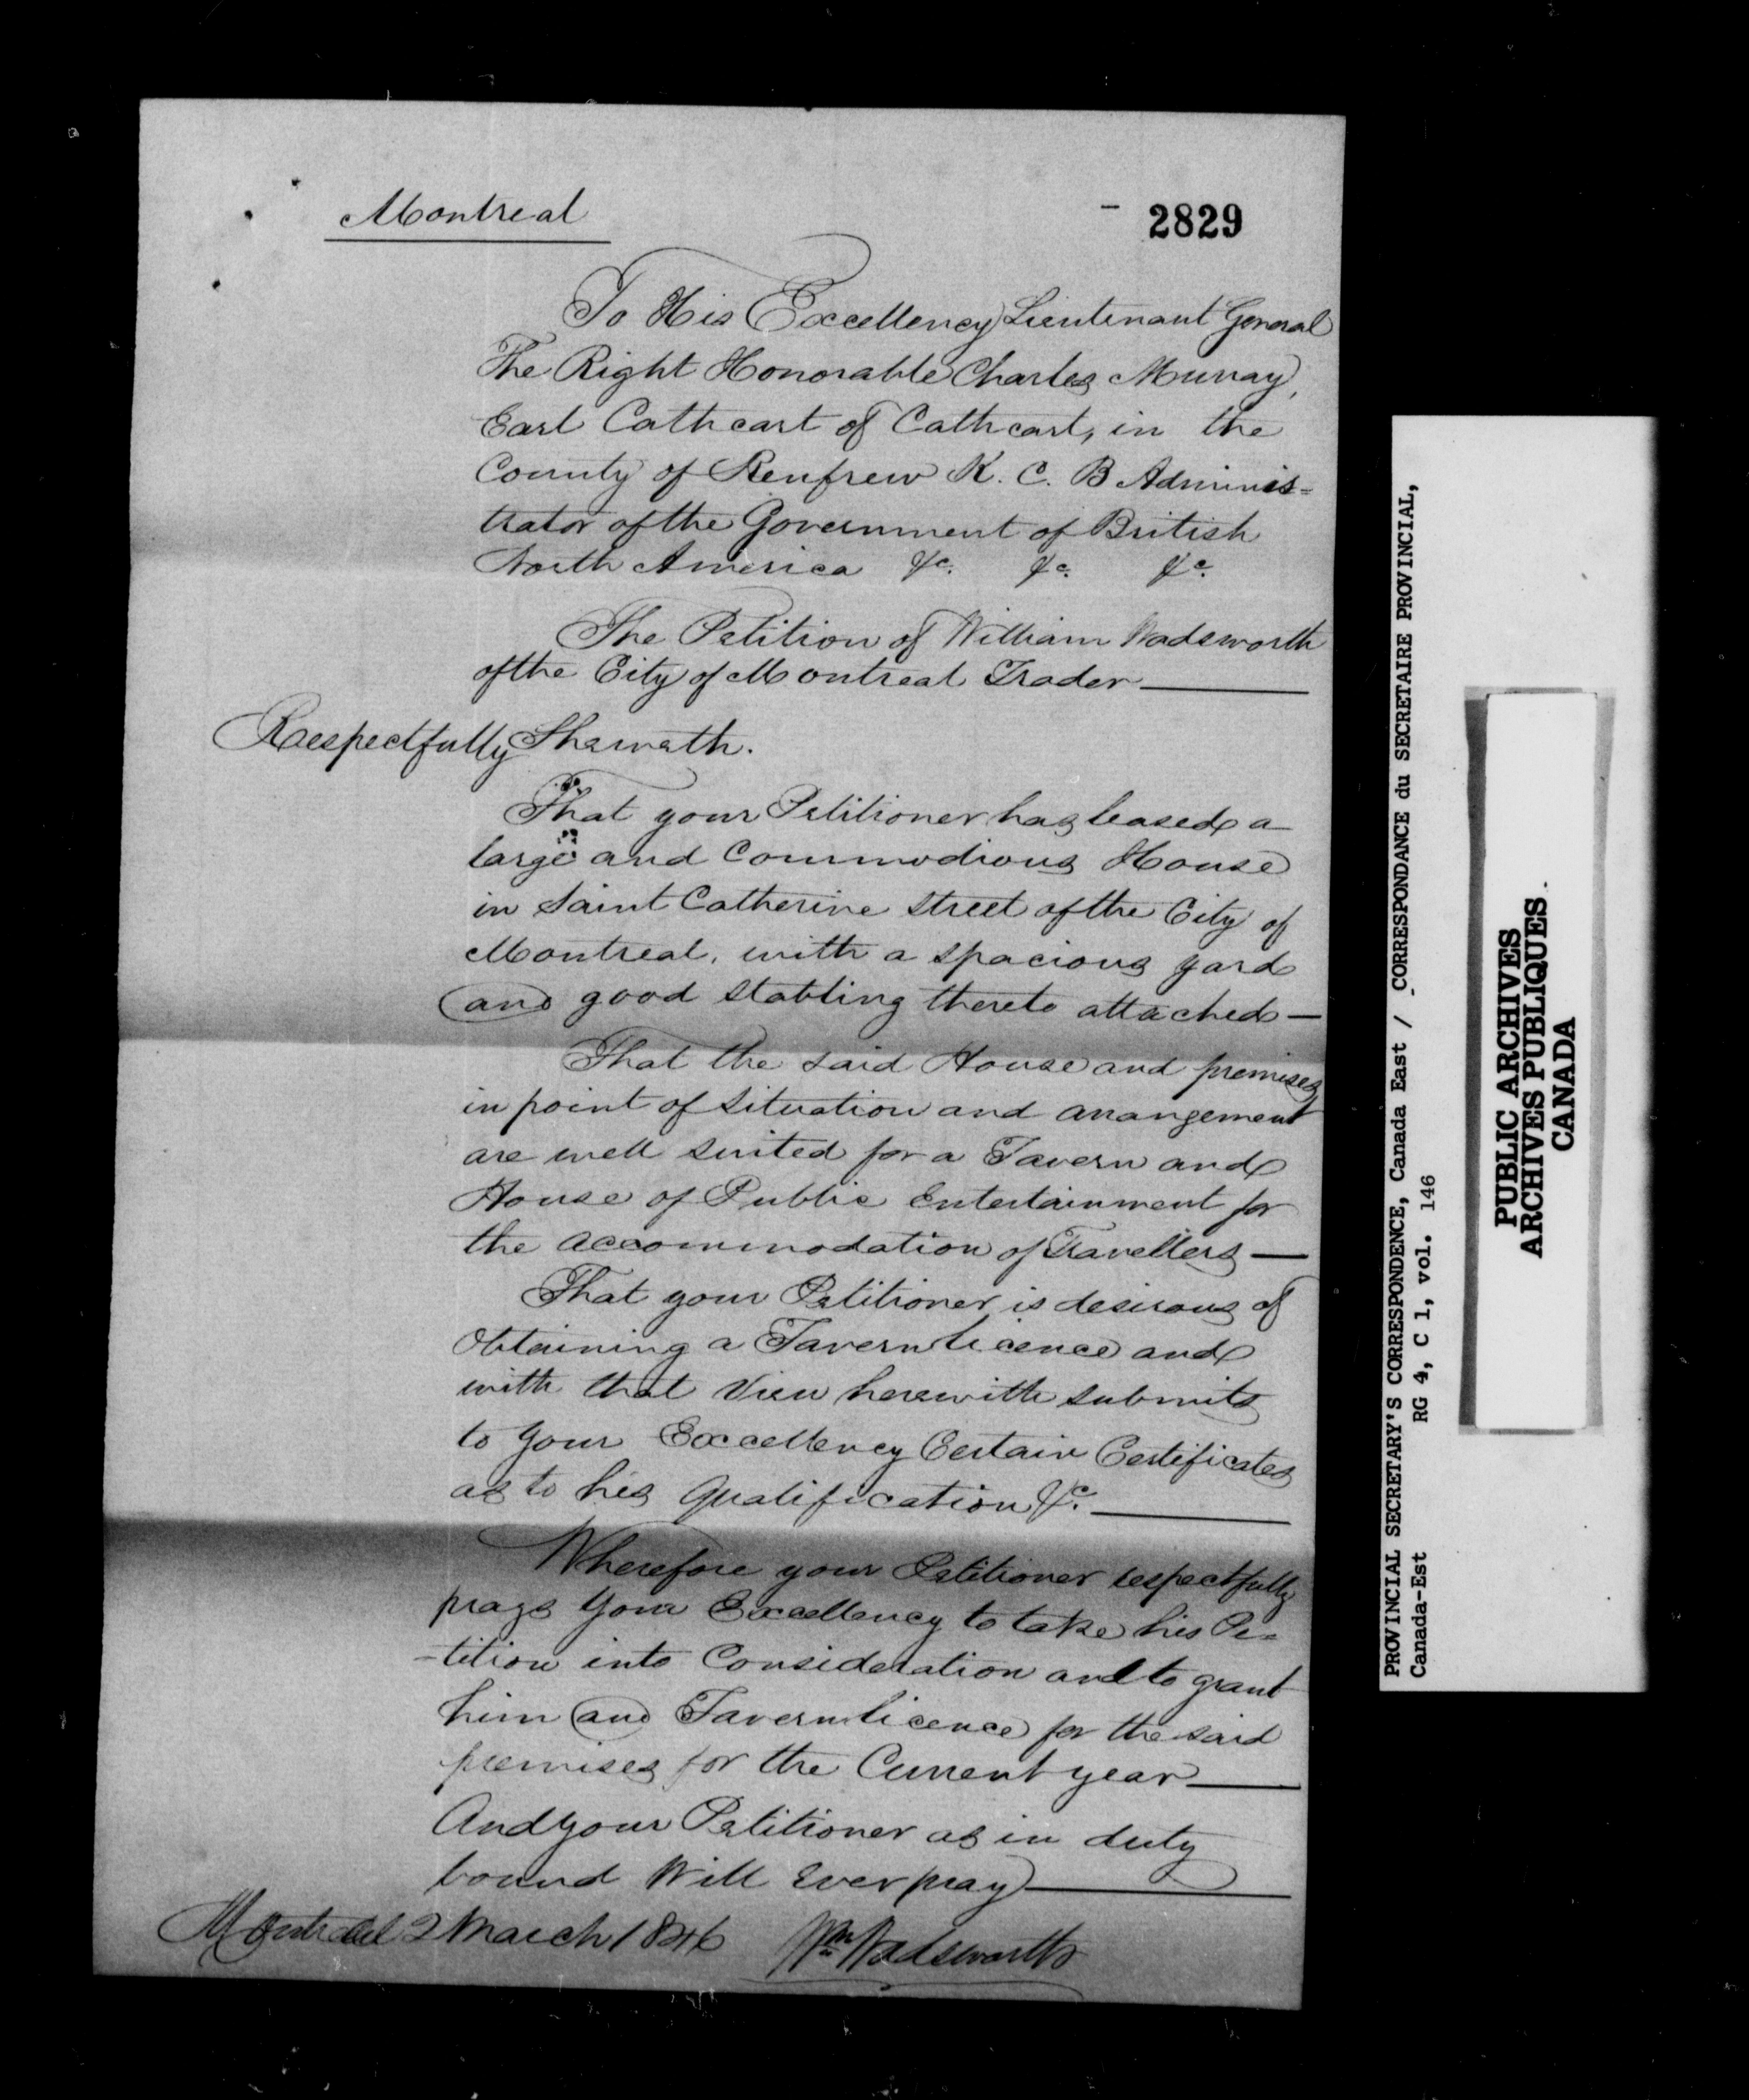 Montreal
- 2829
To His Excellency Lieutenant General
The Right Honorable Charles Murray,
Earl Cathcart of Cathcart, in the
County of Renfrew K. C. B Adminis=
trator of the Government of British
North America &c. &c. &c.
The Petition of William Wadsworth
of the City of Montreal Trader
Respectfully Sheweth.
That your Petitioner has leased a
large and Commodious House
in Saint Catherine street of the City of
Montreal, with a spacious yard
and good stabling thereto attached —
That the said House and premises
in point of situation and arrangement
are well suited for a Tavern and
House of Public Entertainment for
the accommodation of Travellers —
That your Petitioner is desirous of
Obtaining a Tavern licence and
with that View herewith submits
to Your Excellency Certain Certificates
as to his Qualification &c.
Wherefore your Petitioner respectfully
prays Your Excellency to take his Pe=
-tition into Consideration and to grant
him and Tavern licence for the said
premises for the Current year
And your Petitioner as in duty
bound Will Ever pray
Montreal 2 March 1846 Wm Wadsworth
PROVINCIAL SECRETARY'S CORRESPONDENCE, Canada East / CORRESPONDANCE du SECRETAIRE PROVINCIAL,
Canada-Est RG 4, C 1, vol. 146
PUBLIC ARCHIVES
ARCHIVES PUBLIQUES
CANADA